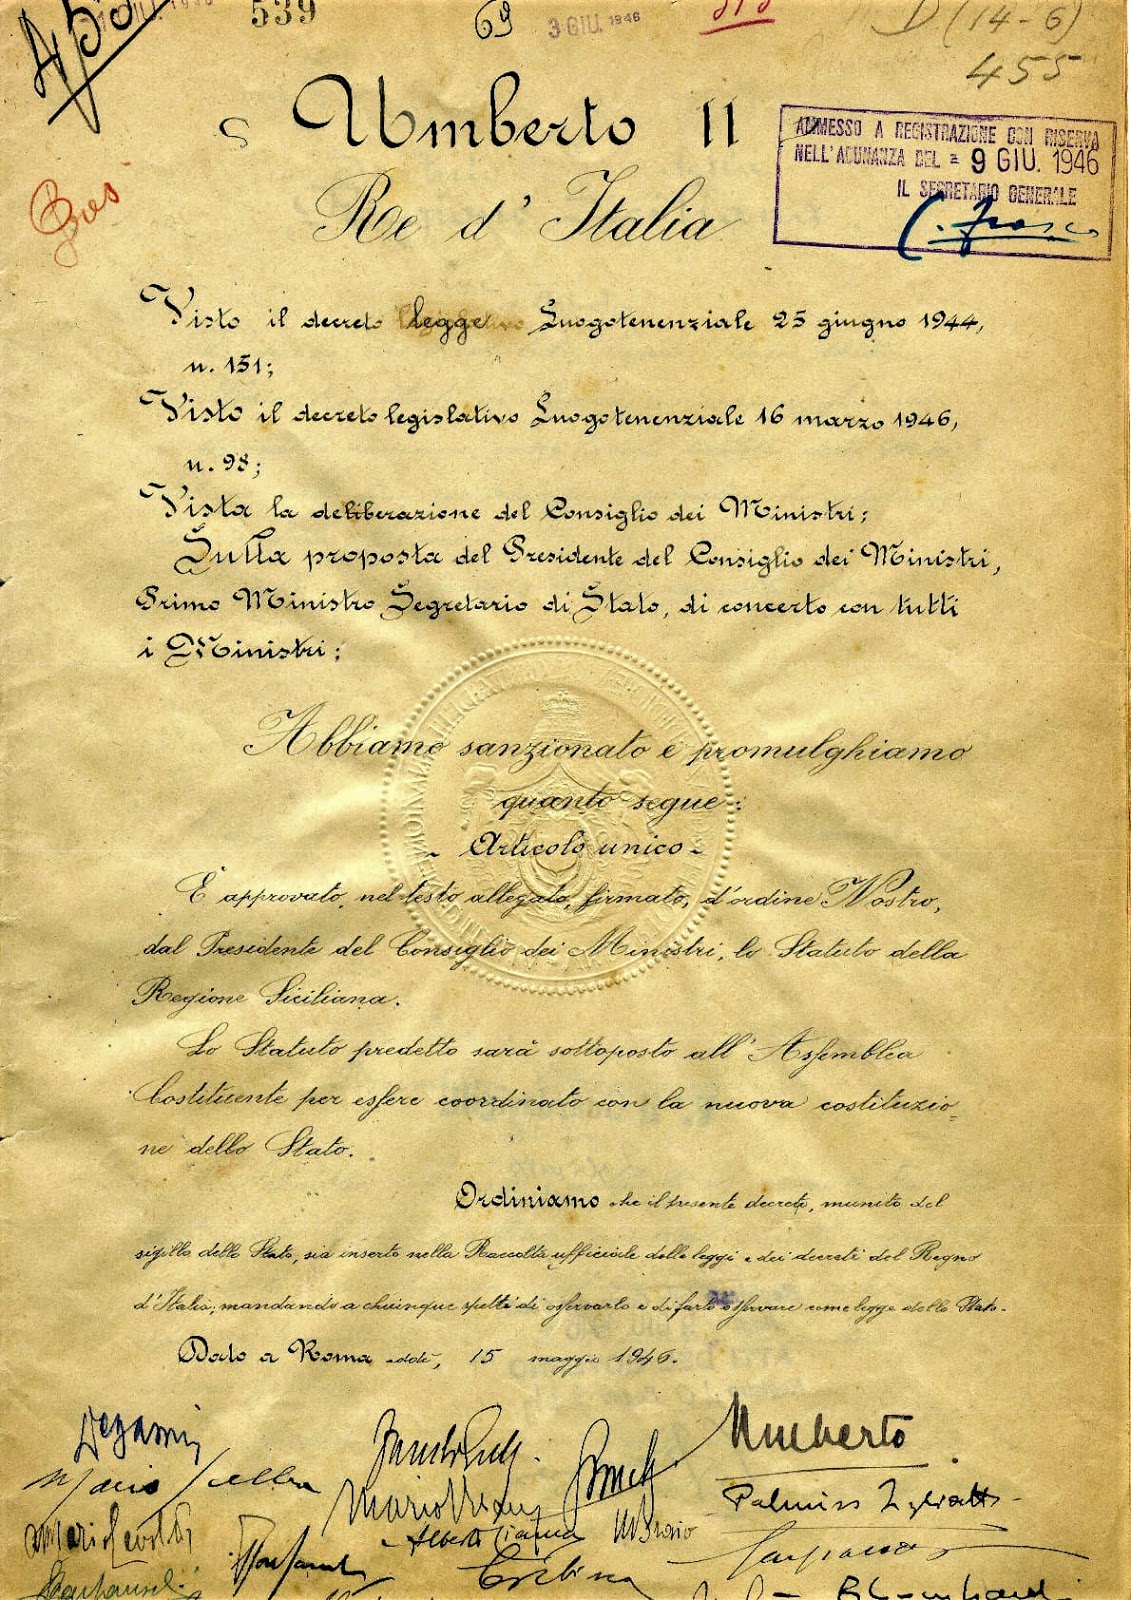 455
539
69
3 GIU. 1946
D (14-6)
455
Umberto II
Re d'Italia
AMMESSO A REGISTRAZIONE CON RISERVA
NELL'ADUNANZA DEL = 9 GIU. 1946
IL SEGRETARIO GENERALE
Visto il decreto legge Luogotenenziale 25 giugno 1944,
n. 151;
Visto il decreto legislativo Luogotenenziale 16 marzo 1946,
n. 98;
Vista la deliberazione del Consiglio dei Ministri;
Sulla proposta del Presidente del Consiglio dei Ministri,
Primo Ministro Segretario di Stato, di concerto con tutti
i Ministri;
Abbiamo sanzionato e promulghiamo
quanto segue:
~ Articolo unico ~
È approvato, nel testo allegato, firmato, d'ordine Nostro,
dal Presidente del Consiglio dei Ministri, lo Statuto della
Regione Siciliana.
Lo Statuto predetto sarà sottoposto all'Assemblea
Costituente per essere coordinato con la nuova costituzio=
ne dello Stato.
Ordiniamo che il presente decreto, munito del
sigillo dello Stato, sia inserto nella Raccolta ufficiale delle leggi e dei decreti del Regno
d'Italia, mandando a chiunque spetti di osservarlo e di farlo osservare come legge dello Stato.
Dato a Roma addì, 15 maggio 1946.
Umberto
Alberto Cianca